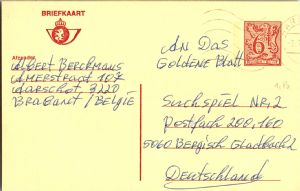 BRIEFKAART
Afzender
Albert Berckmans
Amerstraat 107
Aarschot 3220
Brabant / België
An Das
Goldene Blatt
Suchspiel Nr. 2
Postfach 200,160
5060 Bergisch Gladbach 2
Deutschland
6F